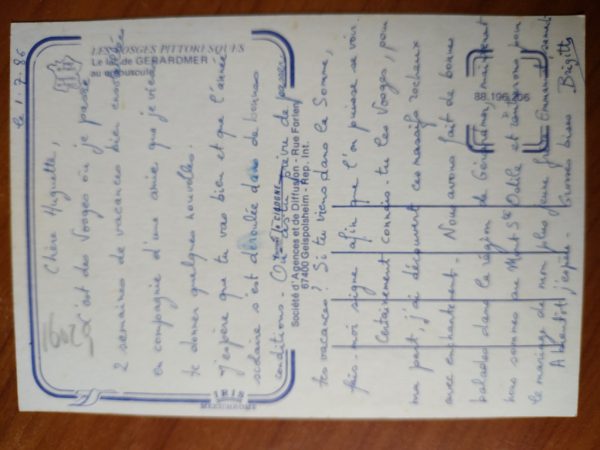 le 1.7.86
Chère Huguette,
C'est des Vosges où je passe
2 semaines de vacances bien
en compagnie d'une amie que je viens
te donner quelques nouvelles.
J'espère que tu vas bien et que l'année
scolaire s'est déroulée dans de bonnes
conditions. Où as-tu prévu de passer
tes vacances? Si tu viens dans la Somme,
fais-moi signe afin que l'on puisse se voir.
Certainement connais-tu les Vosges, pour
ma part, j'ai découvert ces massifs rocheux
avec enchantement. Nous avons fait de bonnes
balades dans la région de Gérardmer, maintenant
nous sommes au Mont Ste Odile et
le mariage de mon plus jeune frère
A bientôt j'espère. Grosses bises
Brigitte
LES VOSGES PITTORESQUES
Le lac de GERARDMER
au crépuscule
88 196 206
Société d'Agences et de Diffusion - Rue Forlen
67400 Geispolsheim - Rep. Int.
IRIS